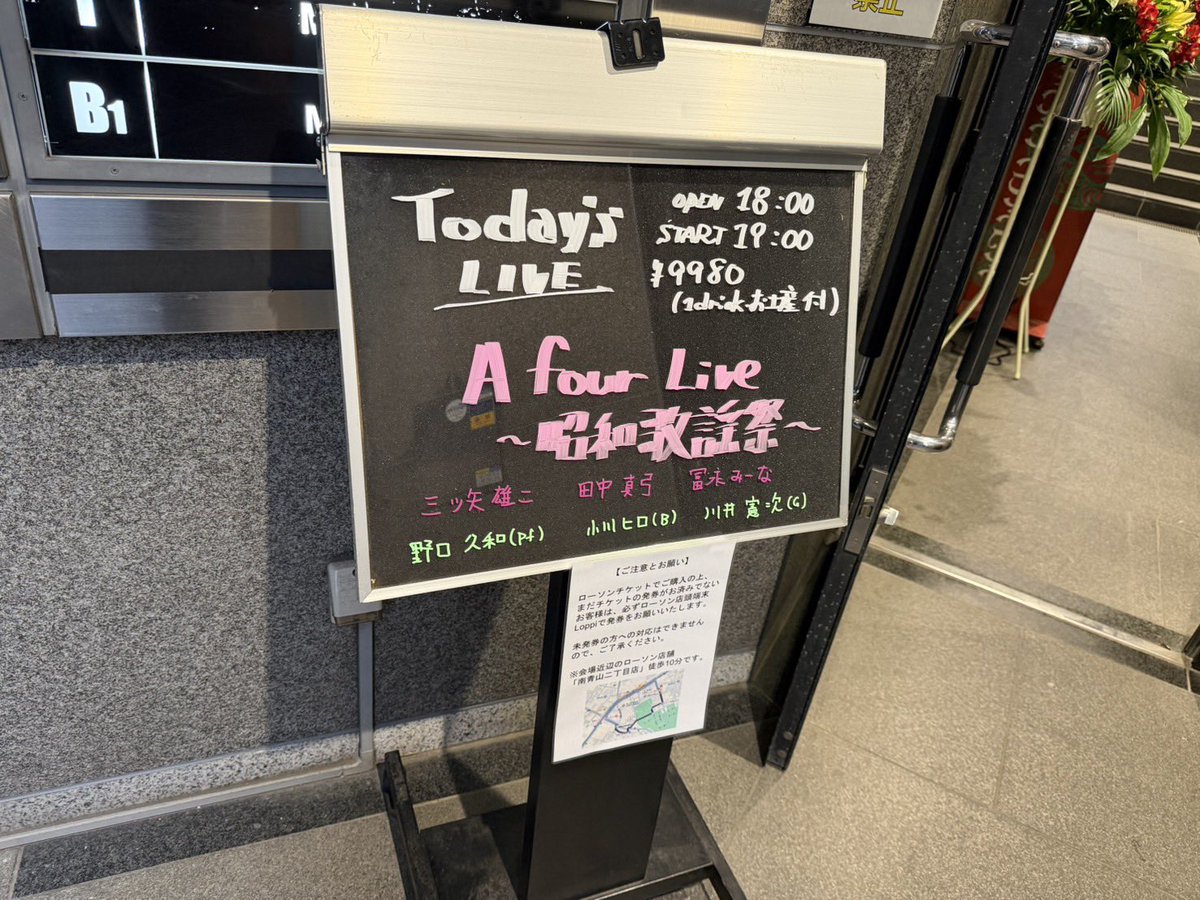 禁止
B1
Today's
LIVE
OPEN 18:00
START 19:00
¥9980
(1drinkお土産付)
A four Live
～昭和歌謡祭～
三ツ矢雄二 田中真弓 冨永みーな
野口久和(pf) 小川ヒロ(B) 川井憲次(G)
【ご注意とお願い】
ローソンチケットでご購入の上、
まだチケットの発券がお済みでない
お客様は、必ずローソン店頭端末
Loppiで発券をお願いいたします。
未発券の方への対応はできません
ので、ご了承ください。
※会場近辺のローソン店舗
「南青山二丁目店」徒歩10分です。